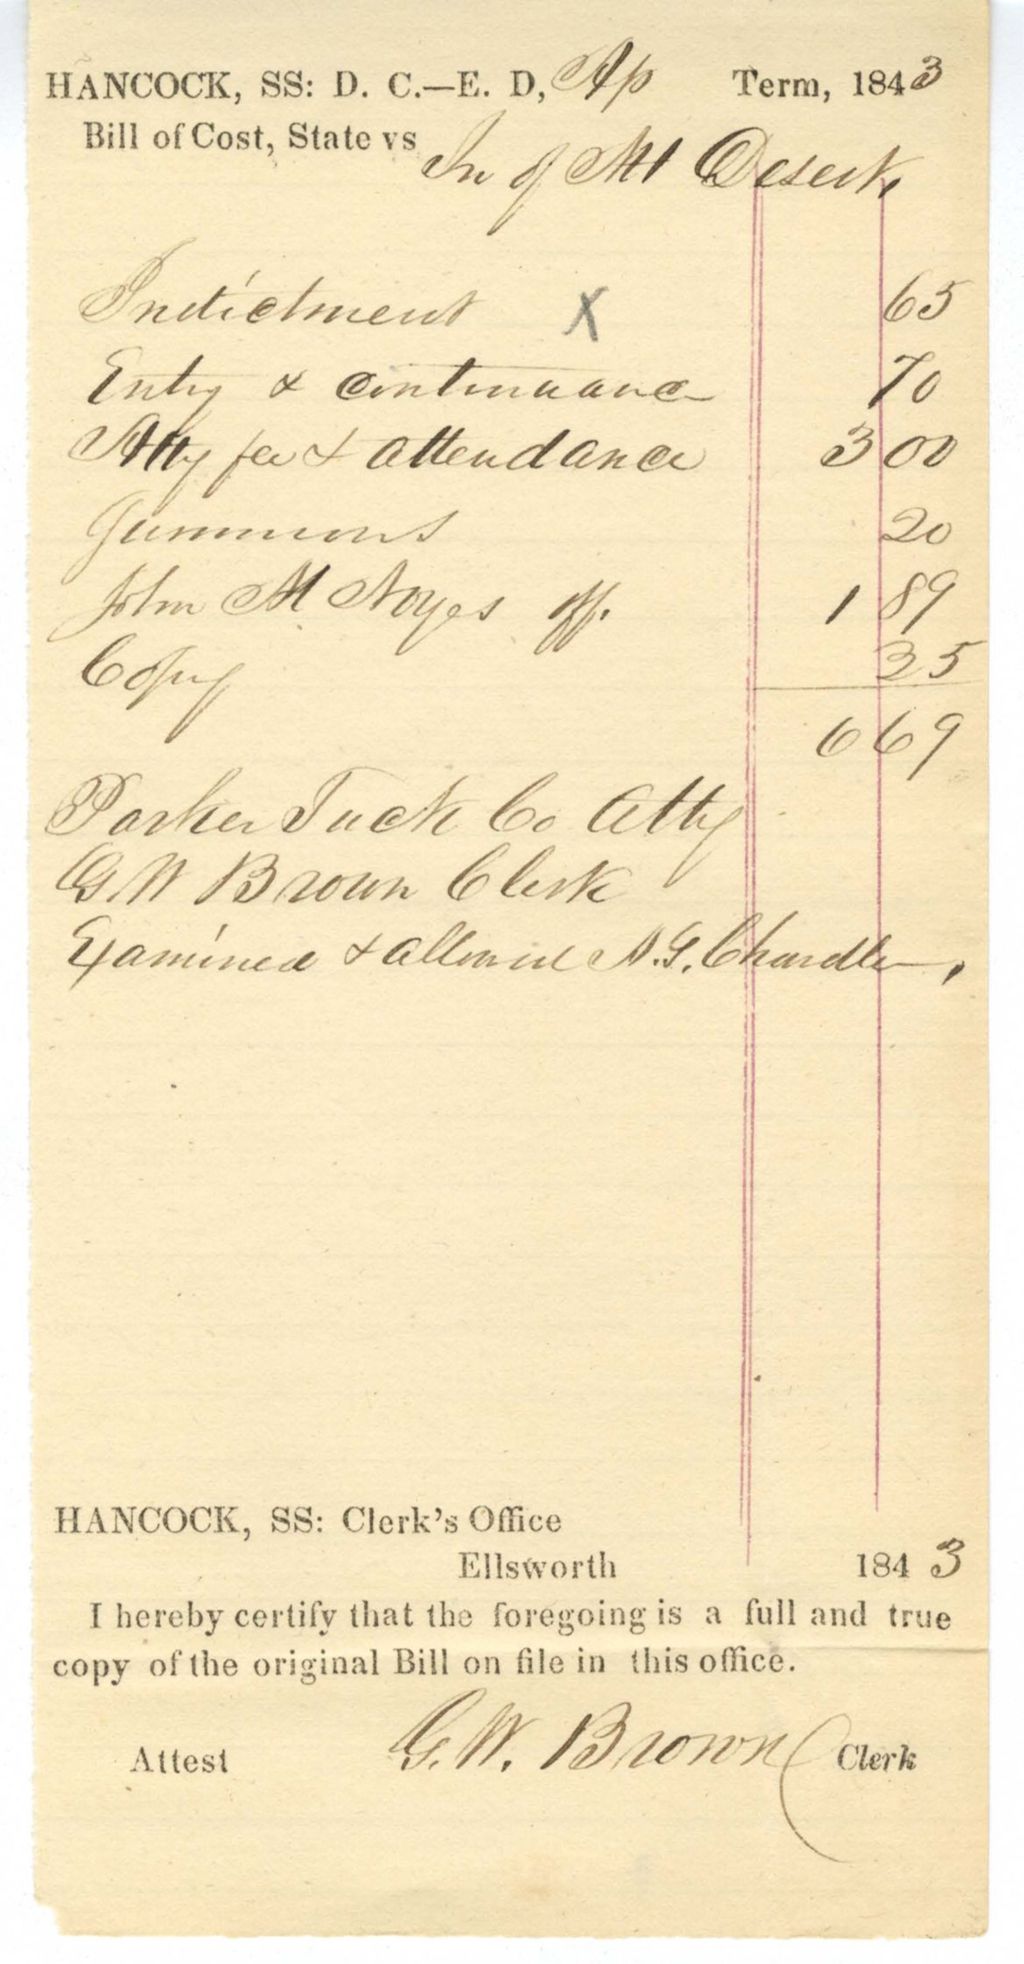 HANCOCK, SS: D. C.—E. D, Ap Term, 1843
Bill of Cost, State vs In of Mt Desert.
Indictment X 65
Entry & continuance 70
Atty fee & attendance 3 00
Summons 20
John M Noyes off. 1 89
Copy 25
6 69
Parker Tuck Co Atty
G. W Brown Clerk
Examined & allowed A. G. Chandler,
HANCOCK, SS: Clerk's Office
Ellsworth 1843
I hereby certify that the foregoing is a full and true
copy of the original Bill on file in this office.
Attest G. W. Brown Clerk